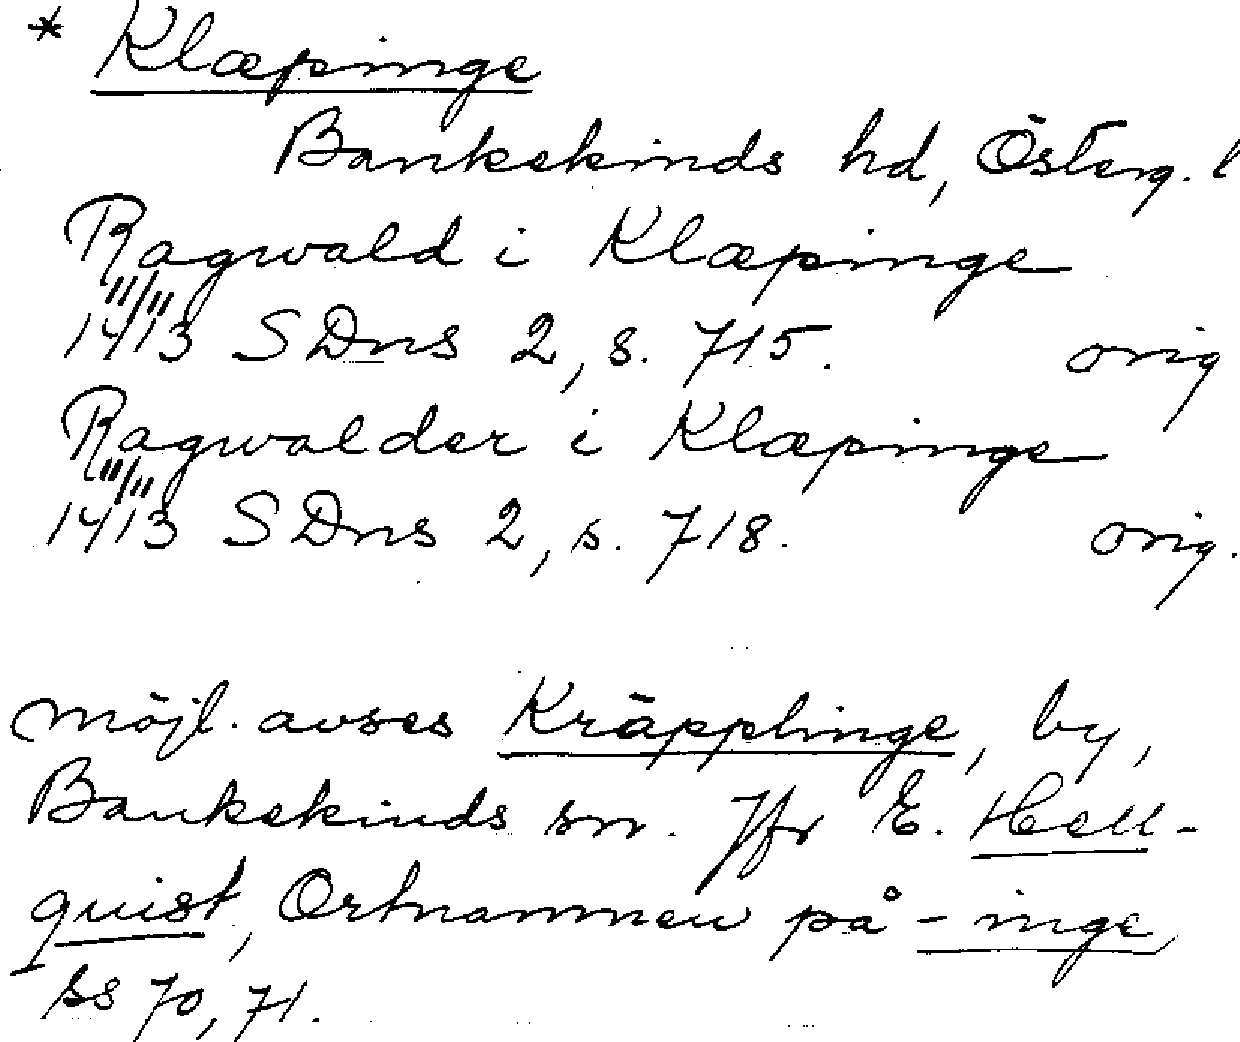 * Klæpinge
Bankekinds hd, Österg. l
Ragwald i Klæpinge
11/11
1413 SDns 2, s. 715. orig
Ragwalder i Klæpinge
11/11
1413 SDns 2, s. 718. orig.
möjl. avses Kräpplinge, by,
Bankekinds sn. Jfr E. Hell-
quist, Ortnamnen på -inge
ss 70, 71.